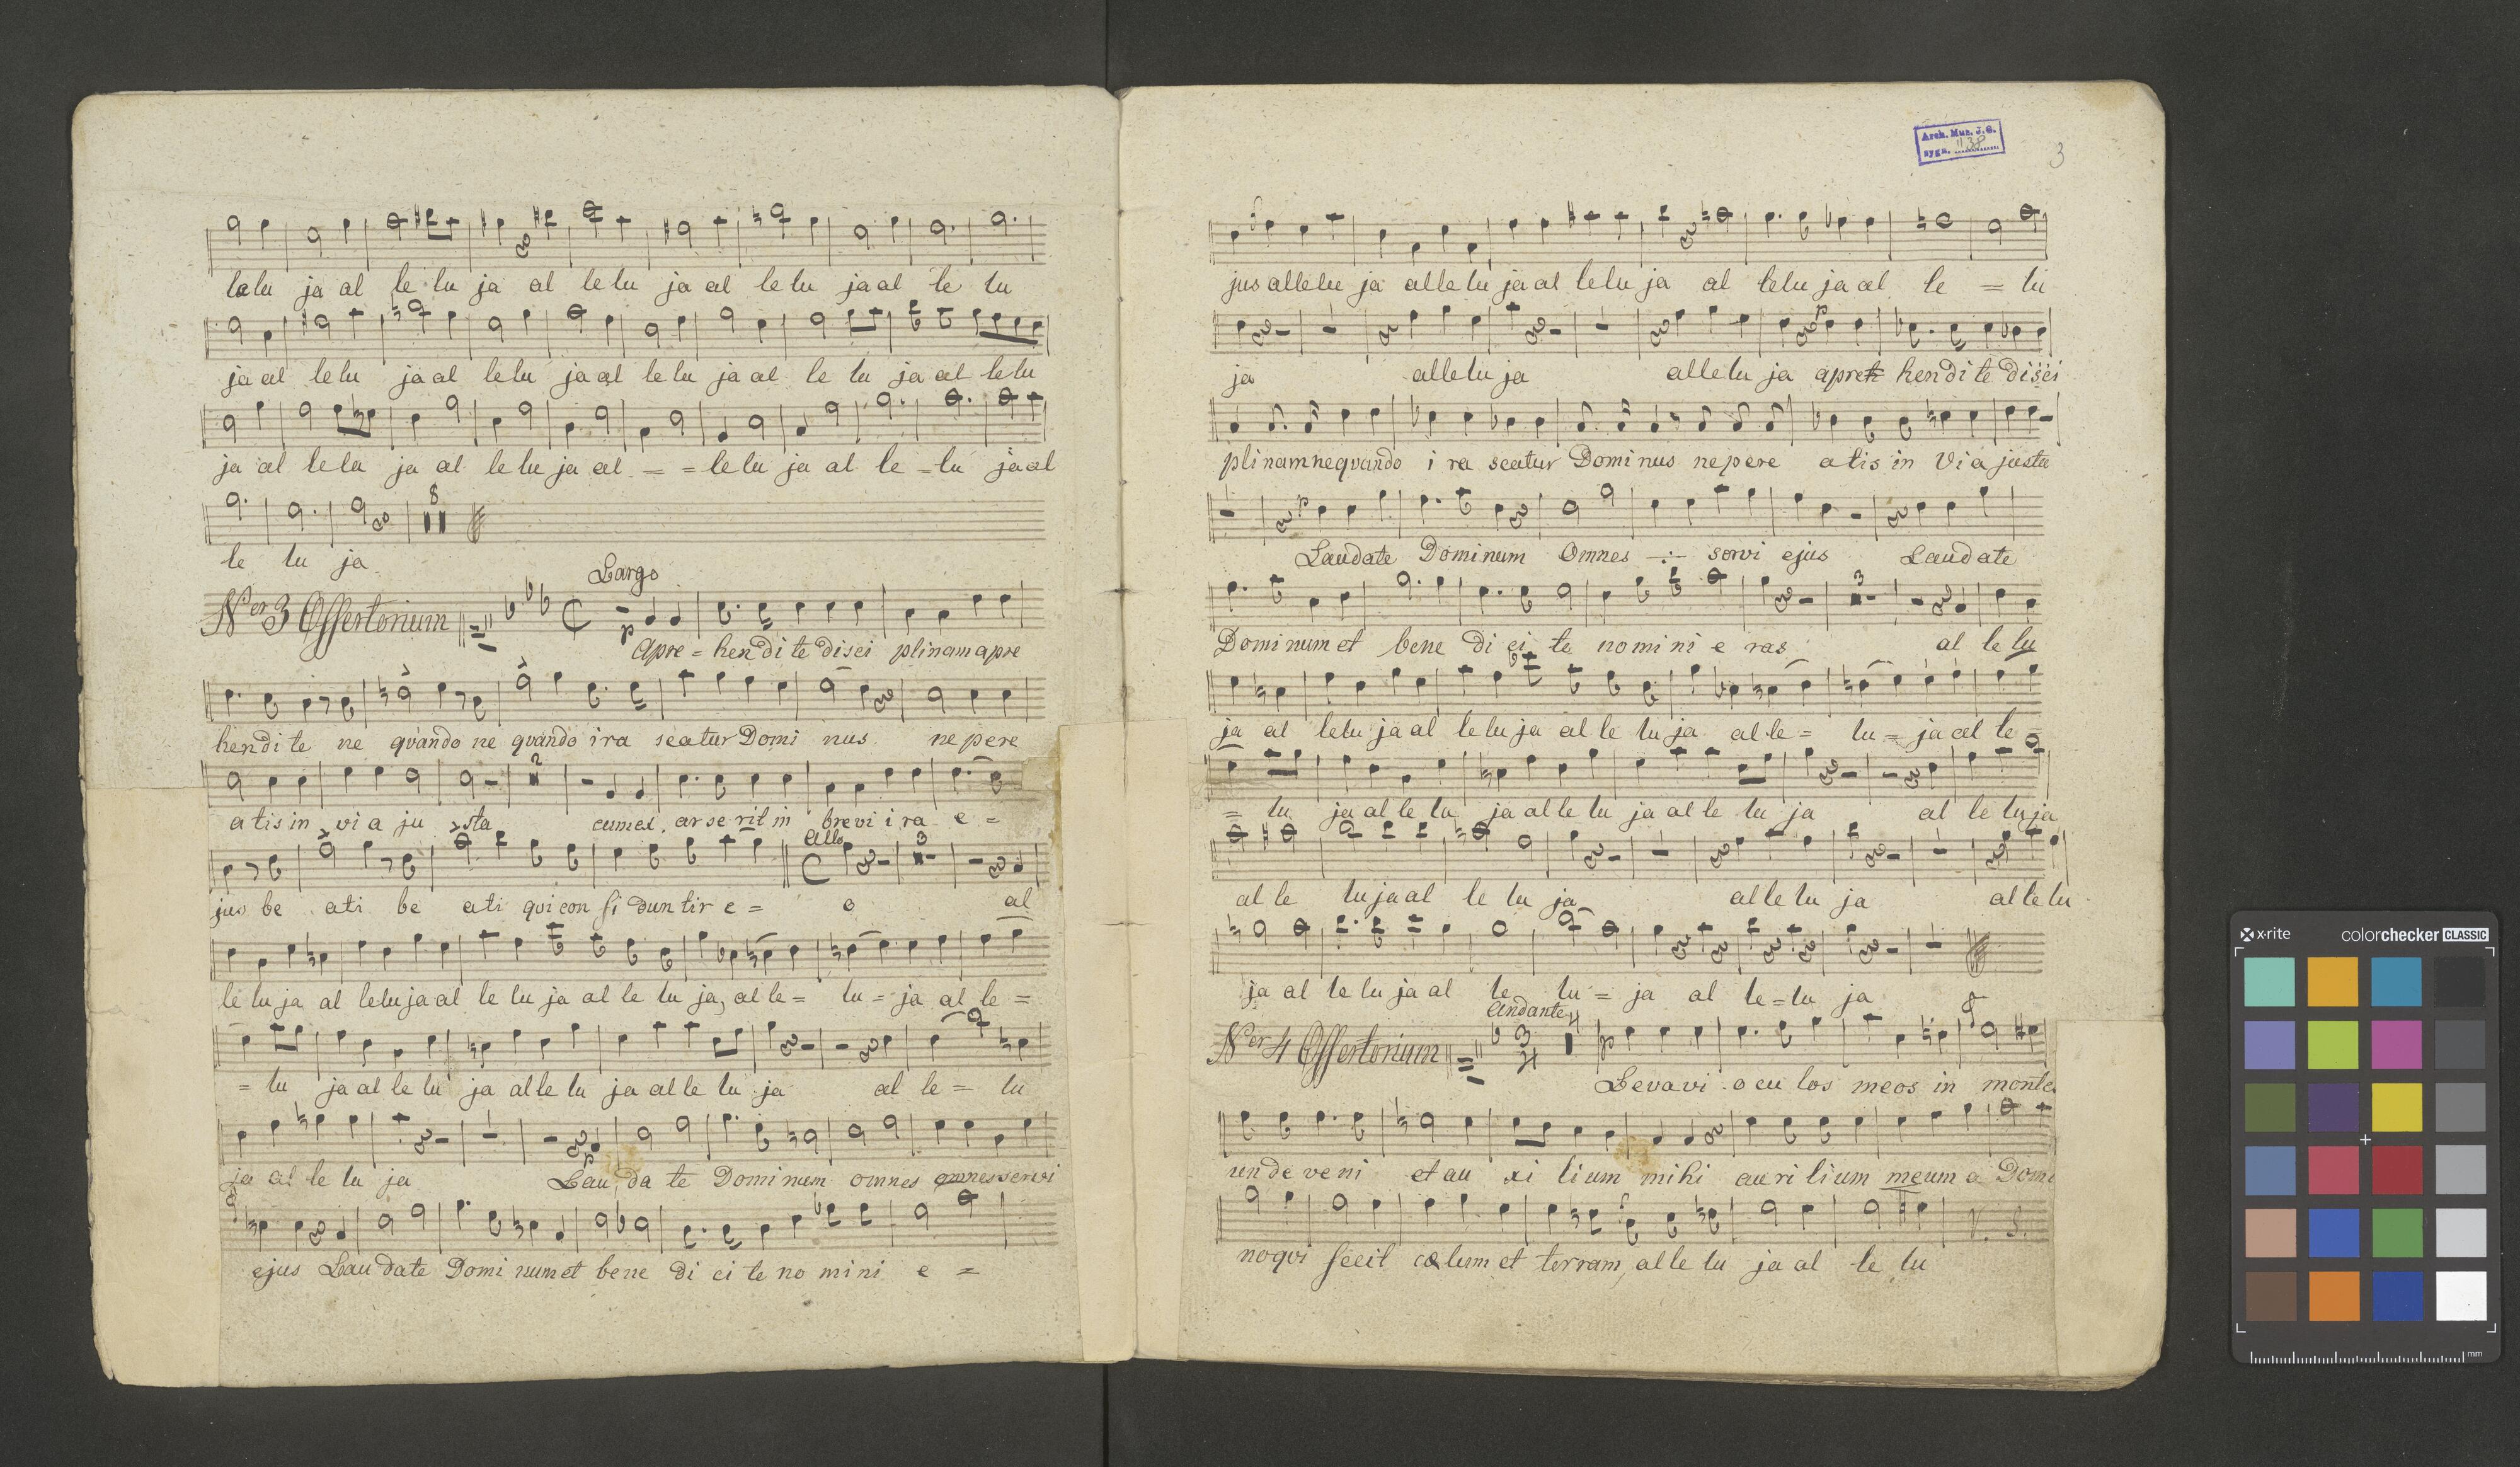 lelu ja al le lu ja al le lu ja al le lu ja al le lu
8
ja al le lu ja al le lu ja al le lu ja al le lu ja al le lu
ja al le lu ja al le lu ja al = = le lu ja al le = lu ja al
le lu ja
Largo
Ner 3 Offertorium
p
Apre = hen di te disci plinam apre
hendi te ne qvando ne qvando ira sceatur Domi nus ne pere
2
atis in vi a ju sta cum ex arse rit in brevi i ra e =
Allo
3
jus be ati be ati qvi con fi dunt ir e = o al
le lu ja al le lu ja al le lu ja al le lu ja, al le = lu = ja al le =
= lu ja al le lu ja al le lu ja al le lu ja al le = lu
ja al le lu ja Lau da te Dominum omnes omnes servi
p
ejus Lau date Domi num et bene di ci te no mi ni e =
Arch. Muz. J. G.
sygn. 1138
3
jus alle lu ja alle lu ja al le lu ja al le lu ja al le = lu
ja alle lu ja alle lu ja apre hen di te disci
plinam ne qvando i ra sceatur Dominus ne pere atis in Via justa
Laudate Dominum Omnes -:- servi ejus Laudate
3
Dominum et bene di ci te nomini e ras al le lu
ja al le lu ja al le lu ja al le lu ja al le = lu = ja al le =
= lu ja al le lu ja al le lu ja al le lu ja al le lu ja
al le lu ja al le lu ja al le lu ja al le lu
ja al le lu ja al le lu = ja al le = lu ja
Andante
Ner 4 Offertorium
3
4
p
Levavi ocu los meos in montes
unde veni et au xi lium mihi auxilium meum a Domi
V. S.
no qvi fecit cœlum et terram, al le lu ja al le lu
x-rite
colorchecker CLASSIC
mm